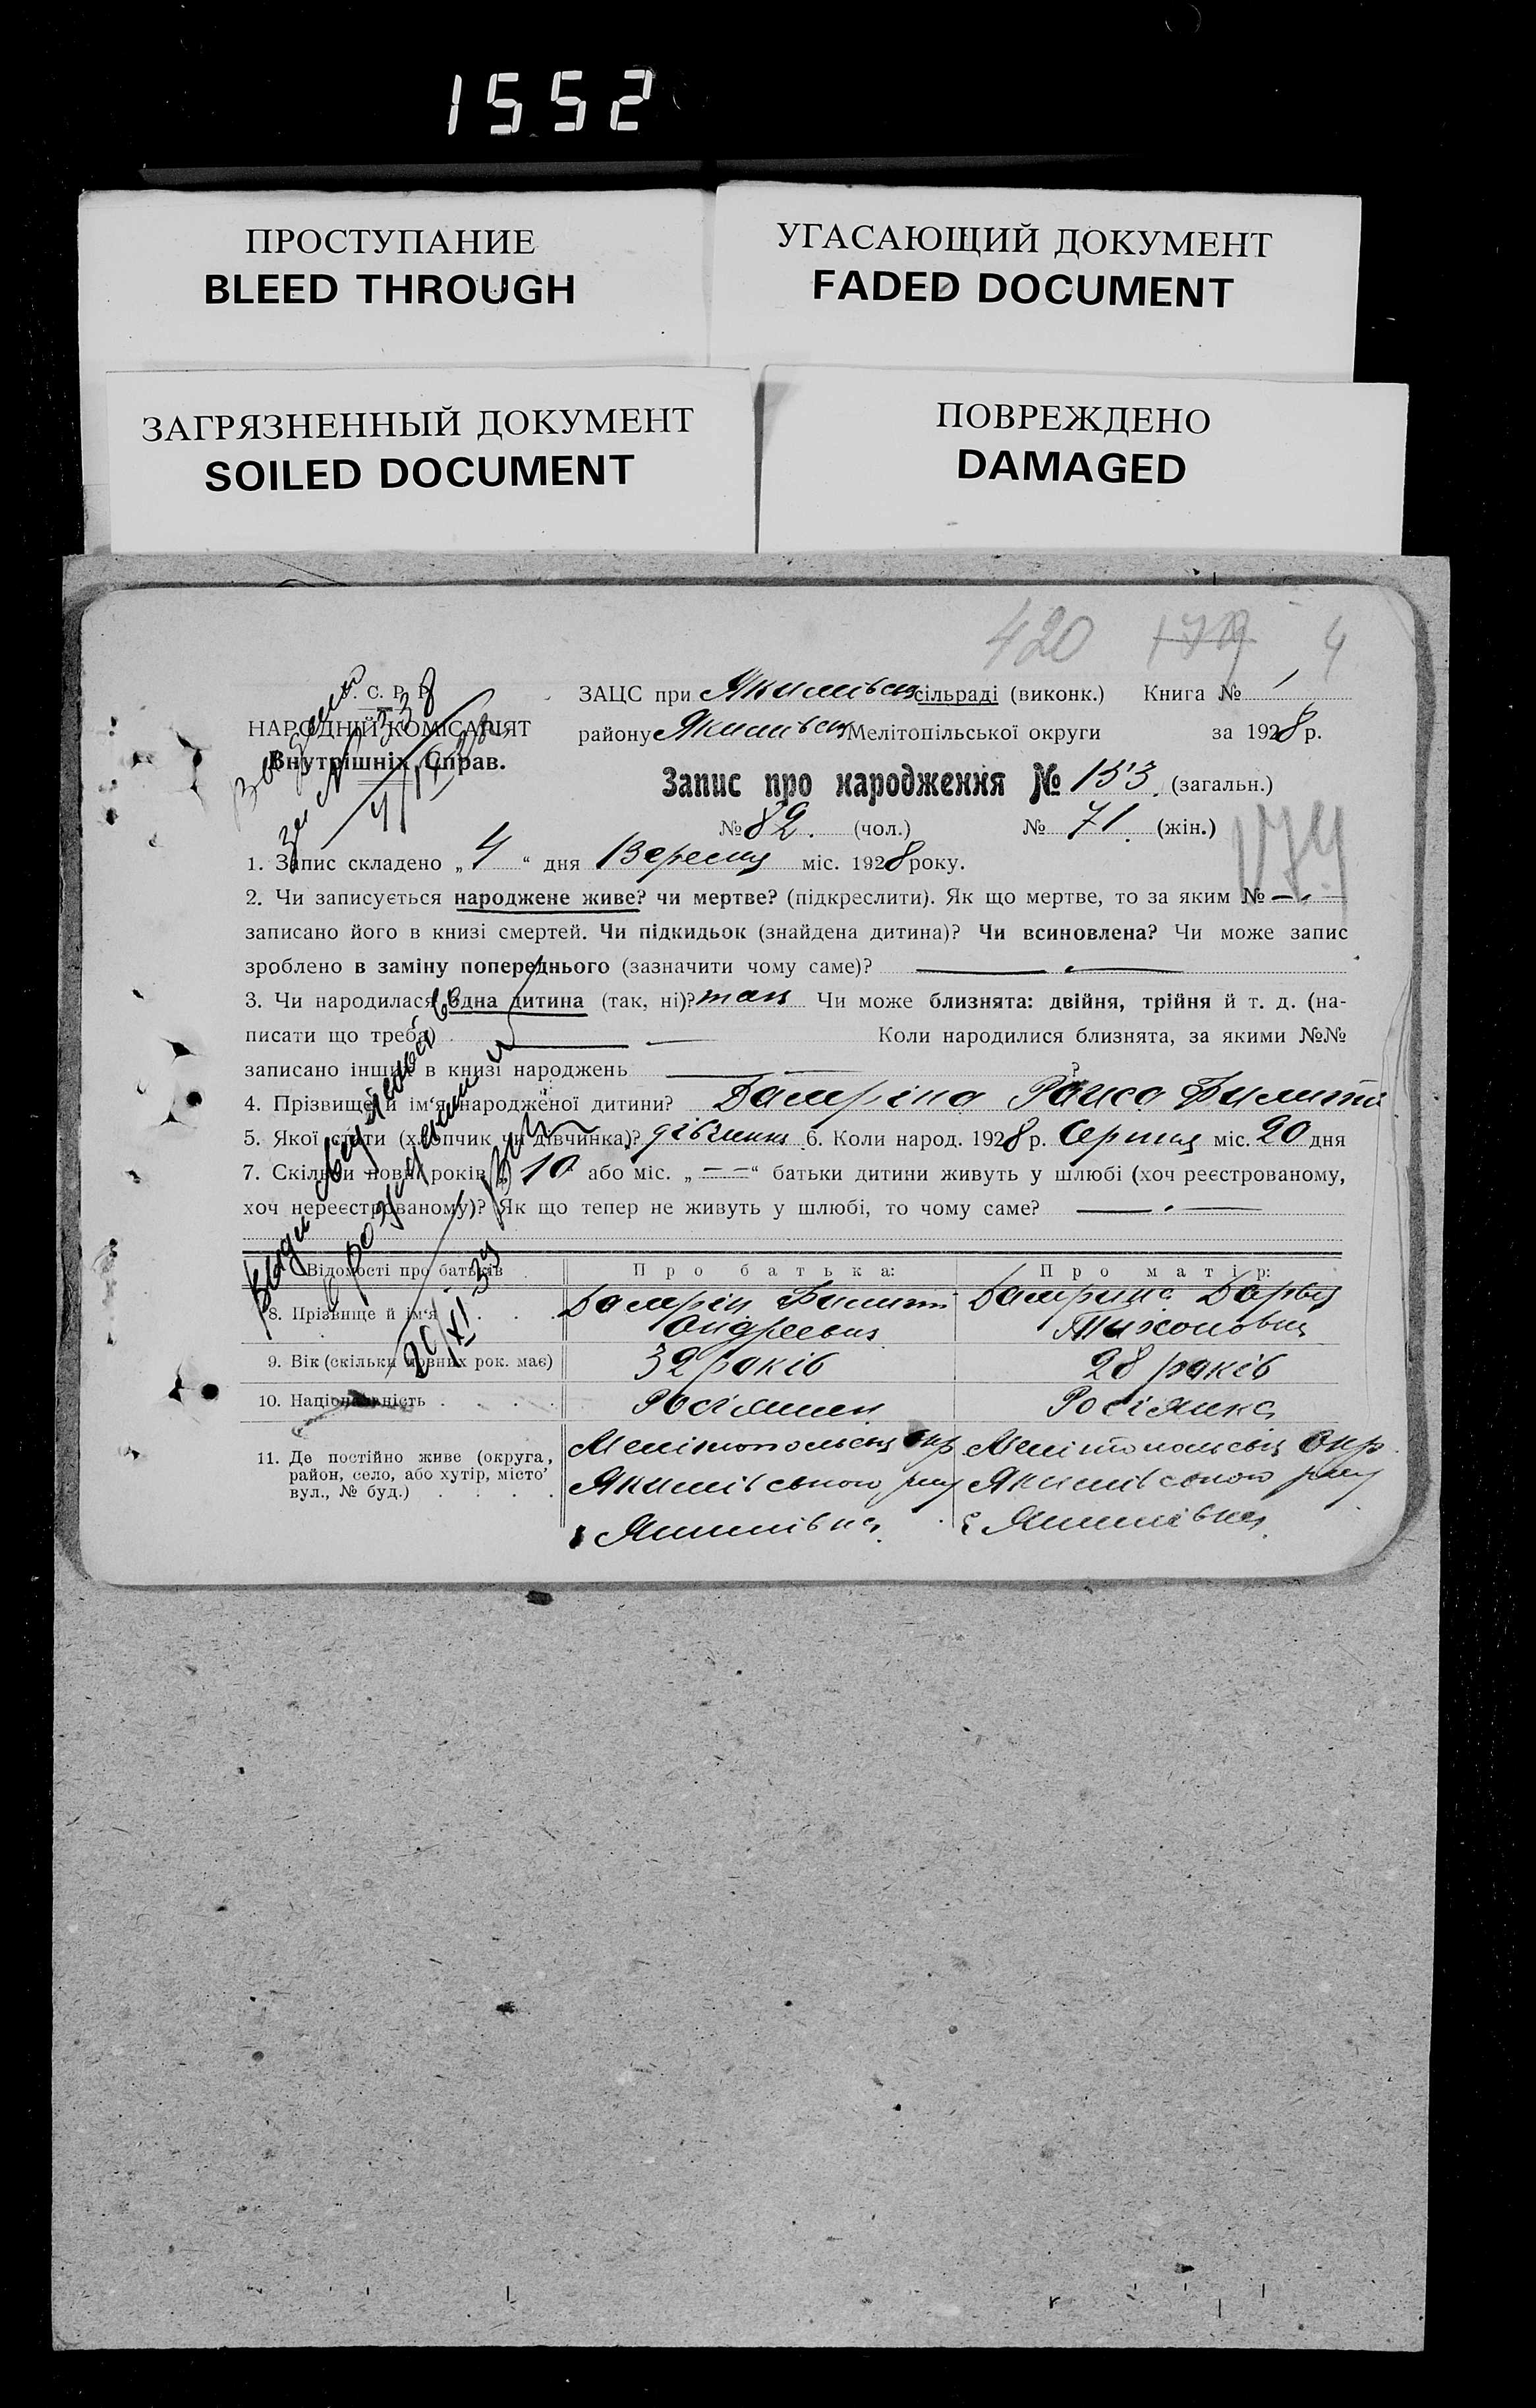 1552
ПРОСТУПАНИЕ
BLEED THROUGH
УГАСАЮЩИЙ ДОКУМЕНТ
FADED DOCUMENT
ЗАГРЯЗНЕННЫЙ ДОКУМЕНТ
SOILED DOCUMENT
ПОВРЕЖДЕНО
DAMAGED
420 179 4
С. Р. Р.
НАРОДНІЙ КОМІСАРІЯТ
Внутрішніх Справ.
ЗАЦС при Якимівськ сільраді (виконк.) Книга № 1
району Якимівськ Мелітопільської округи за 1928 р.
Запис про народження № 153. (загальн.)
№ 82. (чол.) № 71. (жін.)
174
1. Запис складено „ 4 “ дня Вересня міс. 1928 року.
2. Чи записується народжене живе? чи мертве? (підкреслити). Як що мертве, то за яким № —
записано його в книзі смертей. Чи підкидьок (знайдена дитина)? Чи всиновлена? Чи може запис
зроблено в заміну попереднього (зазначити чому саме)? —
3. Чи народилася одна дитина (так, ні)? так Чи може близнята: двійня, трійня й т. д. (на-
писати що треба) — Коли народилися близнята, за якими №№
записано інших в книзі народжень —
4. Прізвище й ім'я народженої дитини? Раиса
5. Якої стати (хлопчик чи дівчинка)? дівчинка 6. Коли народ. 1928 р. Серпня міс. 20 дня
7. Скільки повн. років „ 10 або міс. „ — “ батьки дитини живуть у шлюбі (хоч реєстрованому,
хоч нереєстрованому)? Як що тепер не живуть у шлюбі, то чому саме? —
Відомості про батьків
Про батька:
Про матір:
8. Прізвище й ім'я
Филипп
Андреевич
Дарья
Тихоновна
9. Вік (скільки повних рок. має)
32 років
28 років
10. Національність
Росіянин
Росіянка
11. Де постійно живе (округа,
район, село, або хутір, місто
вул., № буд.)
Мелітопольськ окр
Якимівського рну
Якимівка.
Мелітопольськ окр.
Якимівського рну
с Якимівка.